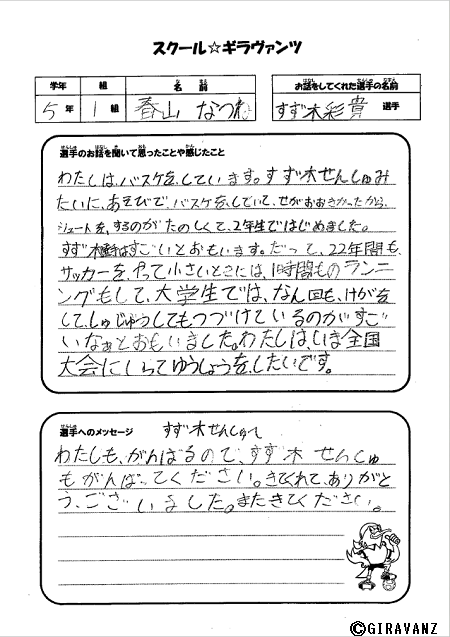 スクール☆ギラヴァンツ
学年 組 名前 お話をしてくれた選手の名前
5年 1組 春山 なつね すず木彩貴 選手
選手のお話を聞いて思ったことや感じたこと
わたしは、バスケを、しています。すず木せんしゅみ
たいに、あそびで、バスケを、していて、せがおおきかったから、
シュートを、するのがたのしくて、2年生ではじめました。
すず木選手はすごいとおもいます。だって、22年間も、
サッカーを、やって小さいときには、1時間ものランニ
ングもして、大学生では、なん回も、けがを
して、しゅじゅつしてもつづけているのがすご
いなぁとおもいました。わたしは、全国
大会にしゅうゆうしょうを、したいです。
選手へのメッセージ すず木せんしゅへ
わたしも、がんばるので、すず木せんしゅ
もがんばってください。きてくれて、ありがと
う、ございました。またきてください。
©GIRAVANZ